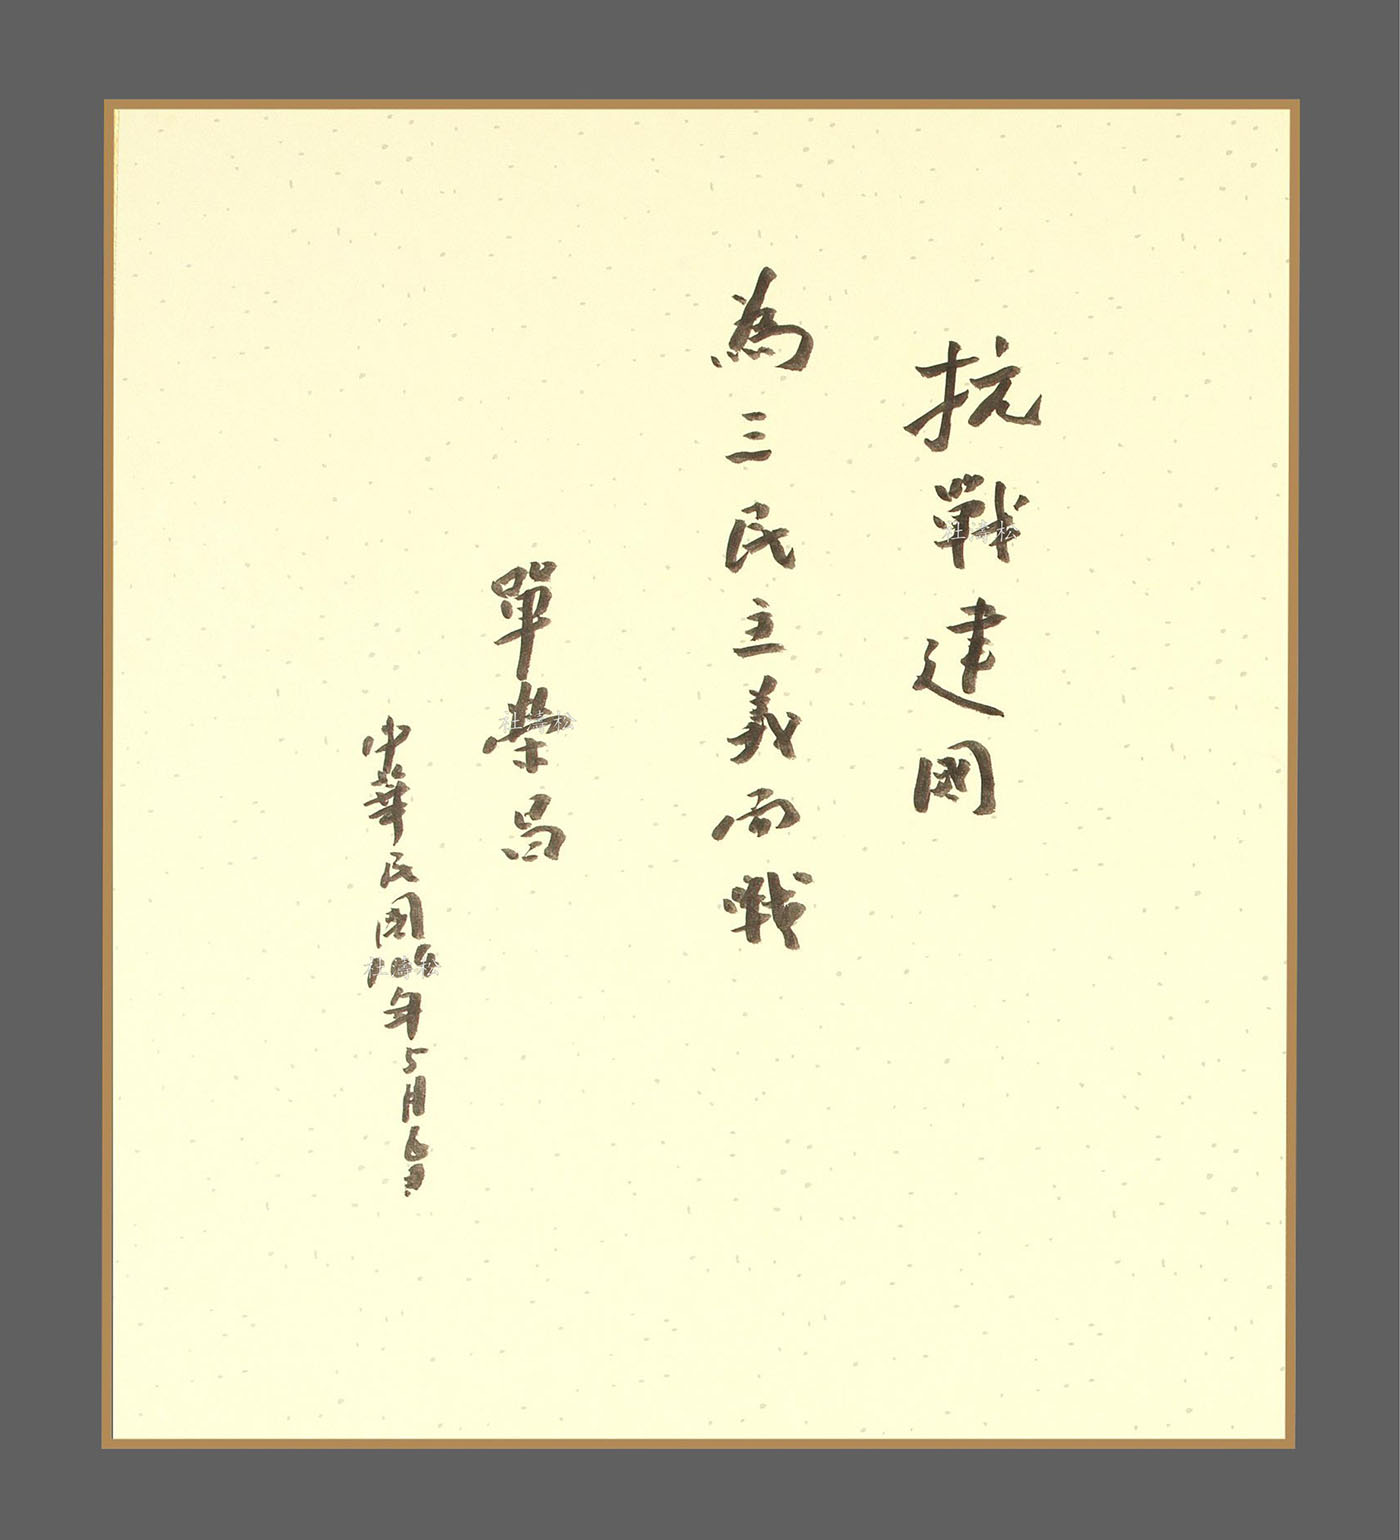 抗戰建國
為三民主義而戰
單榮昌
中華民國104年5月6日
杜濤松
杜濤松
杜濤松